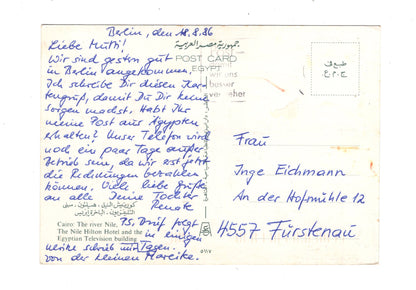 Berlin, den 18.8.86
Liebe Mutti!
Wir sind gestern gut
in Berlin angekommen.
Ich schreibe Dir diesen Kar-
tengruß, damit Du Dir keine
Sorgen machst. Habt Ihr
meine Post aus Ägypten
erhalten? Unser Telefon wird
noch ein paar Tage außer
Betrieb sein, da wir erst jetzt
die Rechnungen bezahlen
können. Viele liebe Grüße
an alle Deine Tochter
Renate
PS. Brief folgt
in einigen
Tagen.
von der kleinen Mareike.
Cairo: The river Nile,
The Nile Hilton Hotel and the
Egyptian Television building
جمهورية مصر العربية
POST CARD
EGYPT
besser
Frau
Inge Eichmann
An der Hofmühle 12
4557 Fürstenau